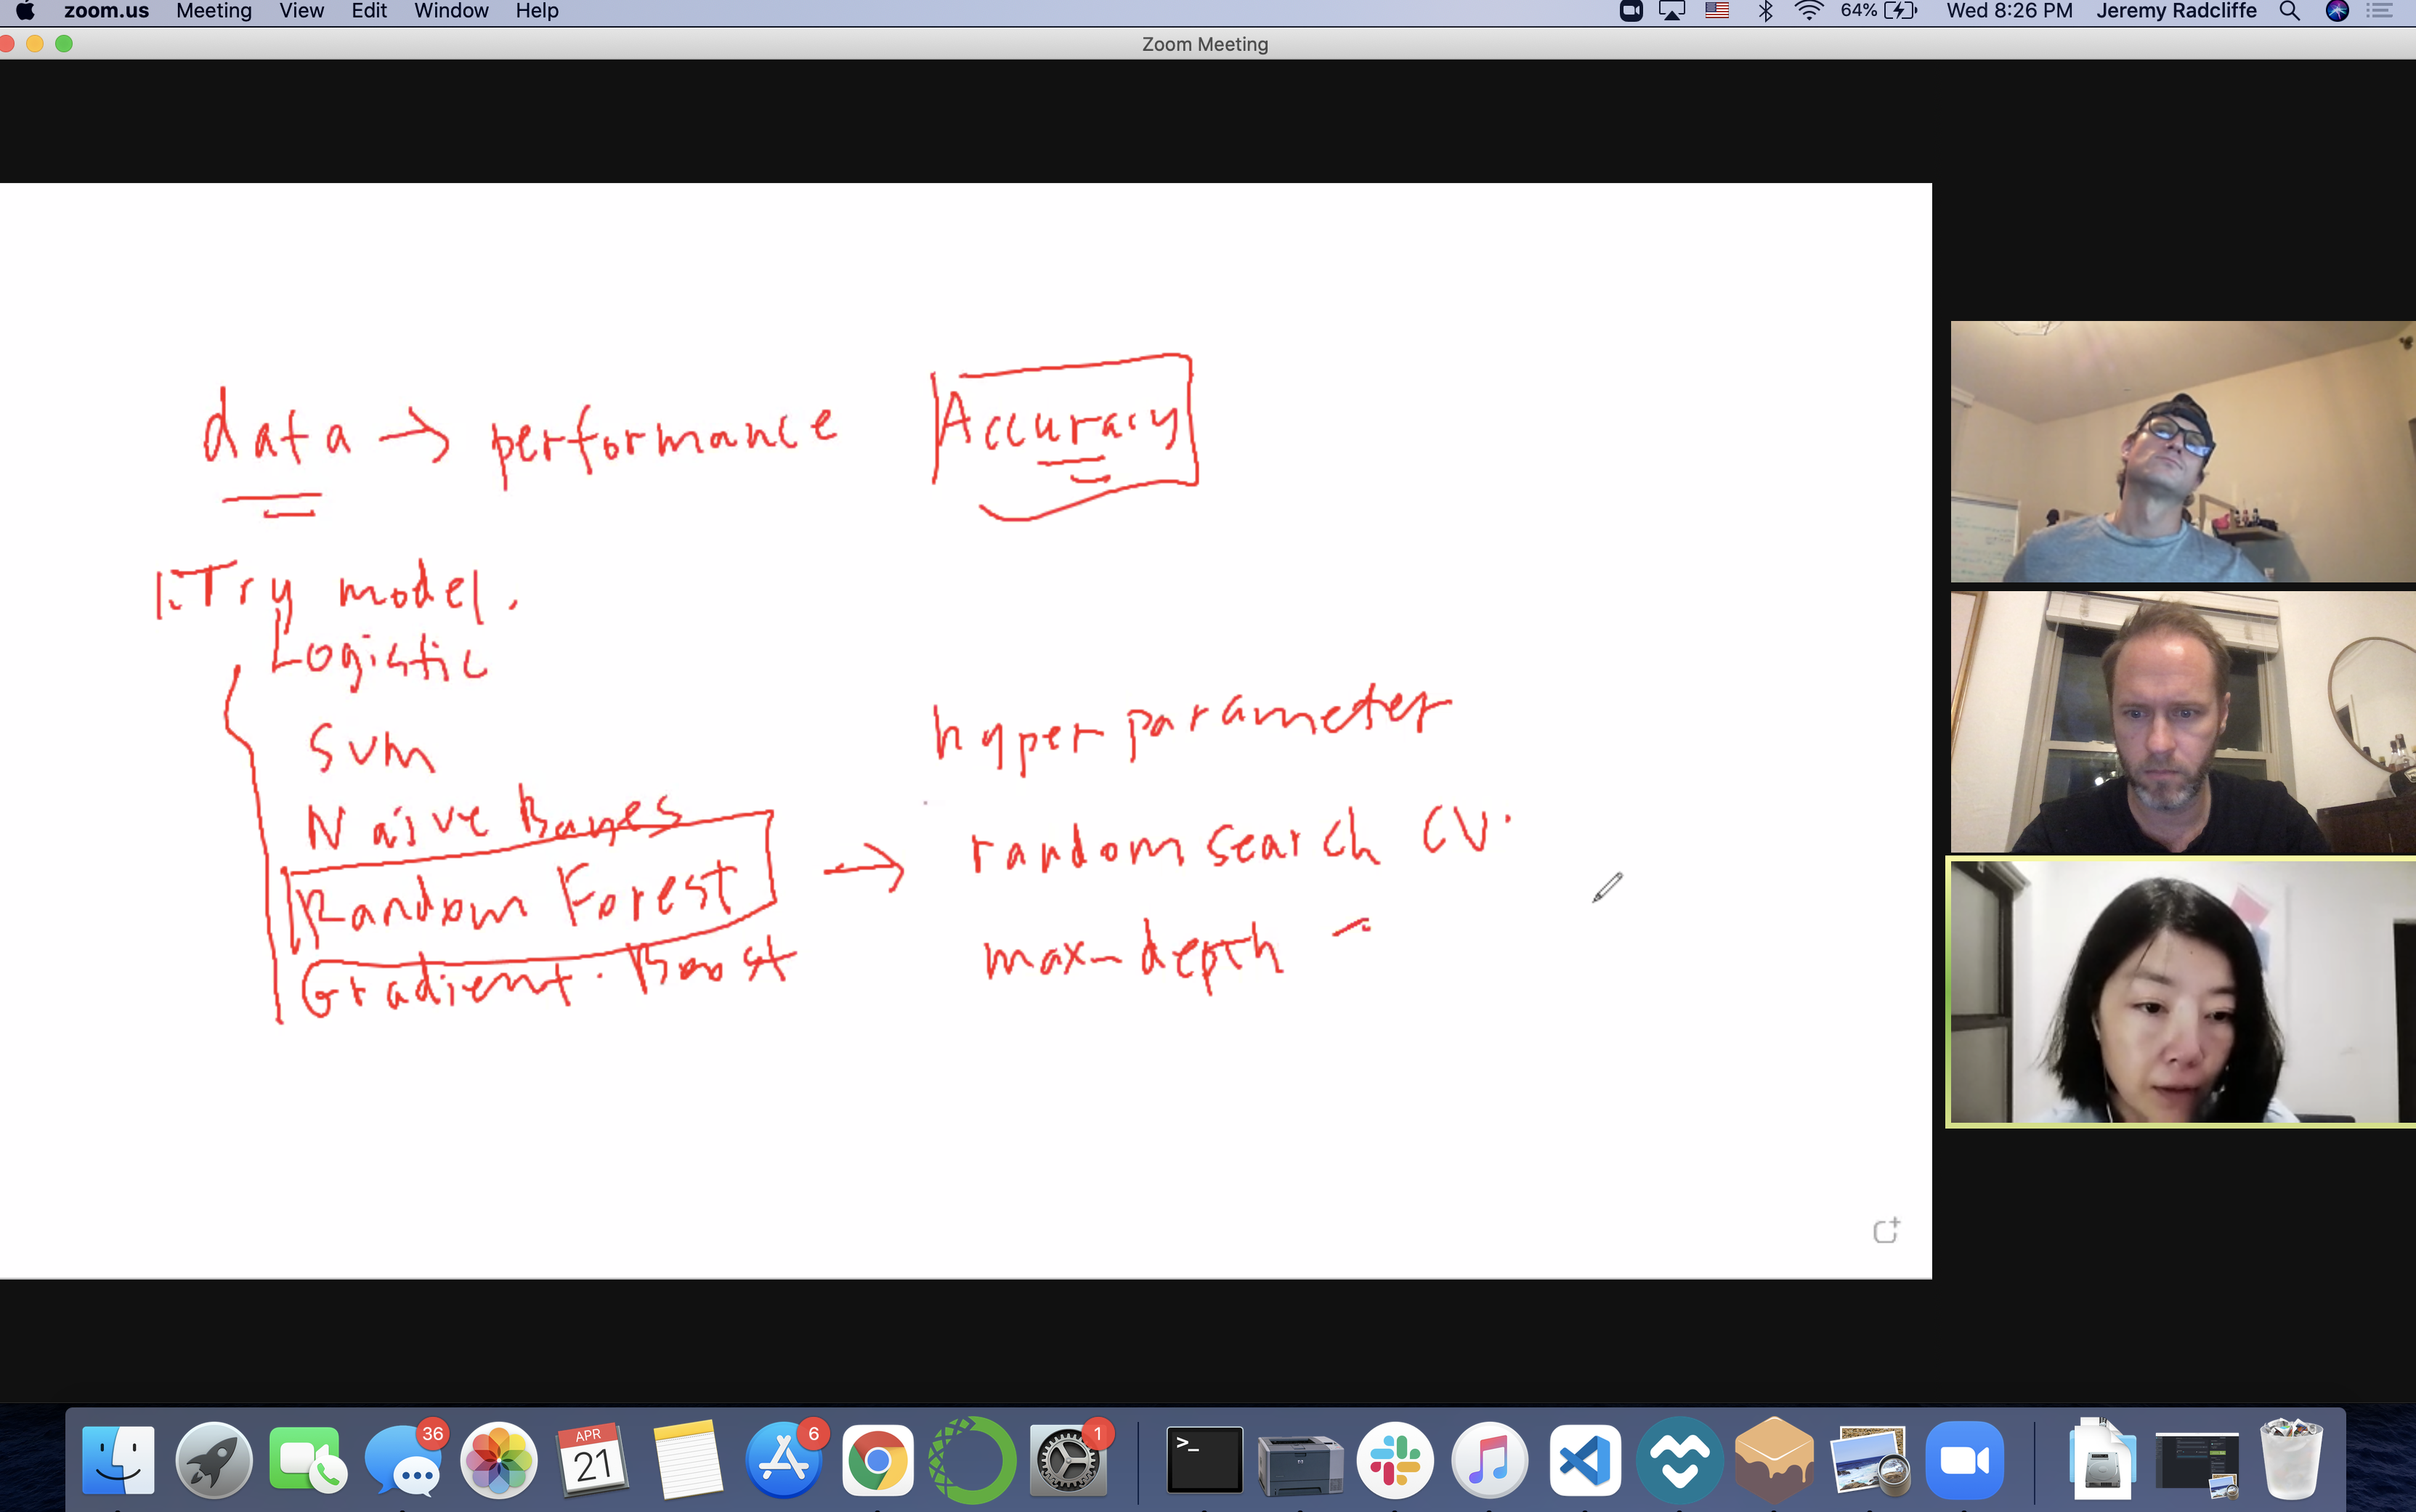 zoom.us Meeting View Edit Window Help 64% Wed 8:26 PM Jeremy Radcliffe
Zoom Meeting
data → performance Accuracy
1. Try model.
Logistic
SVM
Naive Bayes
Random Forest →
Gradient. Boost
hyper parameter
random search CV.
max-depth
36
APR
21
6
1
>_